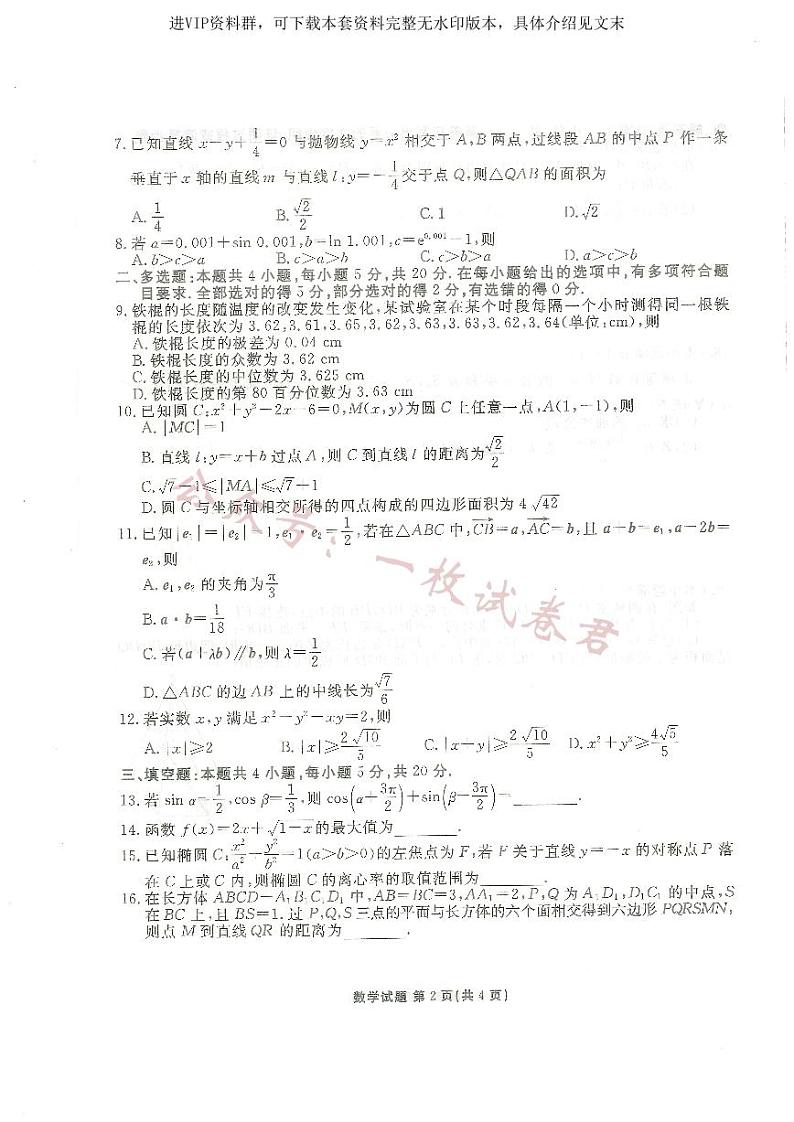 进VIP资料群，可下载本套资料完整无水印版本，具体介绍见文末
7.已知直线 x－y＋1/4＝0 与抛物线 y＝x² 相交于 A,B 两点,过线段 AB 的中点 P 作一条
垂直于 x 轴的直线 m 与直线 l:y＝－1/4交于点 Q,则△QAB 的面积为
A.1/4 B.√2/2 C.1 D.√2
8.若 a＝0.001＋sin 0.001,b＝ln 1.001,c＝e^0.001－1,则
A.b>c>a B.c>a>b C.c>b>a D.a>c>b
二、多选题:本题共 4 小题,每小题 5 分,共 20 分.在每小题给出的选项中,有多项符合题
目要求.全部选对的得 5 分,部分选对的得 2 分,有选错的得 0 分.
9.铁棍的长度随温度的改变发生变化,某试验室在某个时段每隔一个小时测得同一根铁
棍的长度依次为 3.62,3.61,3.65,3.62,3.63,3.63,3.62,3.64(单位:cm),则
A.铁棍长度的极差为 0.04 cm
B.铁棍长度的众数为 3.62 cm
C.铁棍长度的中位数为 3.625 cm
D.铁棍长度的第 80 百分位数为 3.63 cm
10.已知圆 C:x²＋y²－2x－6＝0,M(x,y)为圆 C 上任意一点,A(1,－1),则
A.|MC|＝1
B.直线 l:y＝x＋b 过点 A,则 C 到直线 l 的距离为√2/2
C.√7－1≤|MA|≤√7＋1
D.圆 C 与坐标轴相交所得的四点构成的四边形面积为 4√42
11.已知|e₁|＝|e₂|＝1,e₁·e₂＝1/2,若在△ABC 中,CB＝a,AC＝b,且 a－b＝e₁,a－2b＝
e₂,则
A.e₁,e₂ 的夹角为π/3
B.a·b＝1/18
C.若(a＋λb)∥b,则 λ＝1/2
D.△ABC 的边 AB 上的中线长为√7/6
12.若实数 x,y 满足 x²－y²－xy＝2,则
A.|x|≥2 B.|x|≥2√10/5 C.|x－y|≥2√10/5 D.x²＋y²≥4√5/5
三、填空题:本题共 4 小题,每小题 5 分,共 20 分.
13.若 sin α＝1/2,cos β＝1/3,则 cos(α＋3π/2)＋sin(β－3π/2)＝______.
14.函数 f(x)＝2x＋√1－x的最大值为______.
15.已知椭圆 C:x²/a²＋y²/b²＝1(a>b>0)的左焦点为 F,若 F 关于直线 y＝－x 的对称点 P 落
在 C 上或 C 内,则椭圆 C 的离心率的取值范围为______.
16.在长方体 ABCD－A₁B₁C₁D₁ 中,AB＝BC＝3,AA₁＝2,P,Q 为 A₁D₁,D₁C₁ 的中点,S
在 BC 上,且 BS＝1.过 P,Q,S 三点的平面与长方体的六个面相交得到六边形 PQRSMN,
则点 M 到直线 QR 的距离为______.
公众号：一枚试卷君
数学试题 第 2 页(共 4 页)